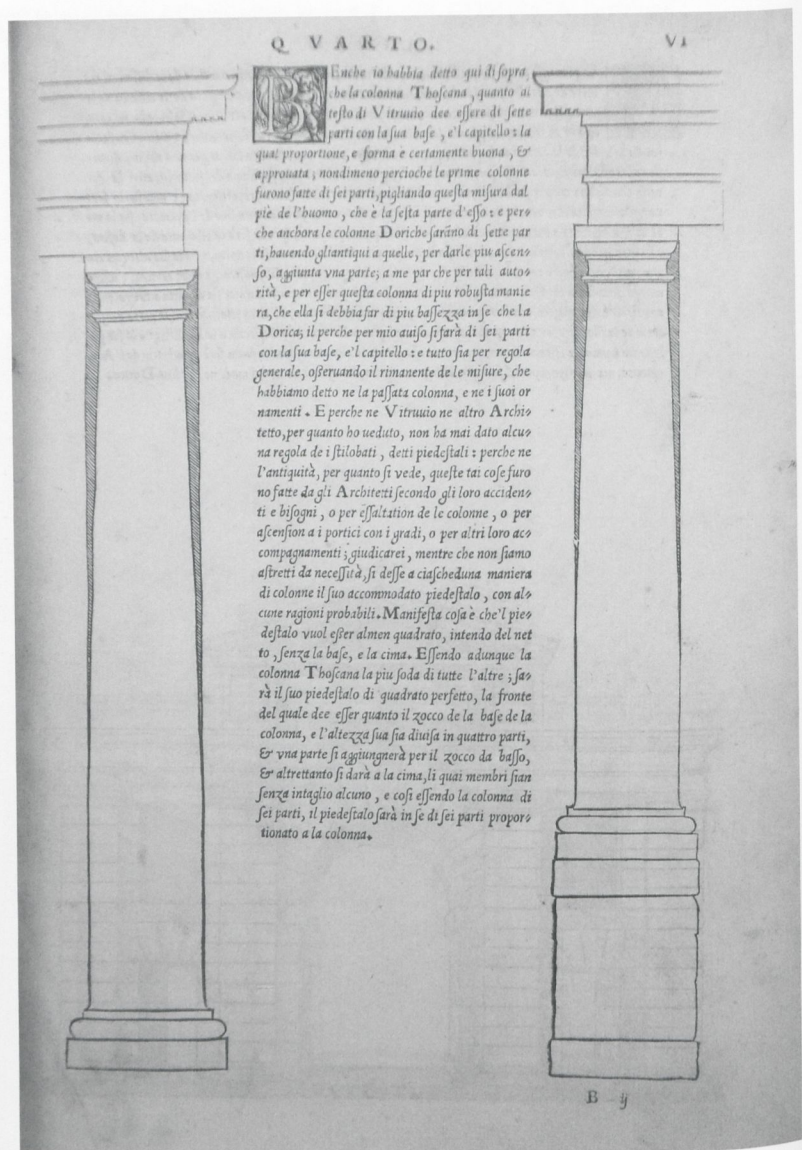 Q V A R T O.
VI
BEnche io habbia detto qui di ſopra
che la colonna Thoſcana, quanto al
teſto di Vitruuio dee eſſere di ſette
parti con la ſua baſe, e'l capitello: la
qual proportione, e forma è certamente buona, &
approuata, nondimeno percioche le prime colonne
furono fatte di ſei parti, pigliando queſta miſura dal
piè de l'huomo, che è la ſeſta parte d'eſſo: e per-
che anchora le colonne Doriche ſarāno di ſette par
ti, hauendo gli antiqui a quelle, per darle piu aſcen-
ſo, aggiunta vna parte; a me par che per tali auto-
rità, e per eſſer queſta colonna di piu robuſta manie
ra, che ella ſi debbia far di piu baſſezza in ſe che la
Dorica; il perche per mio auiſo ſi farà di ſei parti
con la ſua baſe, e'l capitello: e tutto ſia per regola
generale, oſſeruando il rimanente de le miſure, che
habbiamo detto ne la paſſata colonna, e ne i ſuoi or
namenti. E perche ne Vitruuio ne altro Archi-
tetto, per quanto ho ueduto, non ha mai dato alcu-
na regola de i ſtilobati, detti piedeſtali: perche ne
l'antiquità, per quanto ſi vede, queſte tai coſe furo
no fatte da gli Architetti ſecondo gli loro acciden-
ti e biſogni, o per eſſaltation de le colonne, o per
aſcenſion a i portici con i gradi, o per altri loro ac-
compagnamenti; giudicarei, mentre che non ſiamo
aſtretti da neceſſità, ſi deſſe a ciaſcheduna maniera
di colonne il ſuo accommodato piedeſtalo, con al-
cune ragioni probabili. Manifeſta coſa è che'l pie-
deſtalo vuol eſſer almen quadrato, intendo del net
to, ſenza la baſe, e la cima. Eſſendo adunque la
colonna Thoſcana la piu ſoda di tutte l'altre; ſa-
rà il ſuo piedeſtalo di quadrato perfetto, la fronte
del quale dee eſſer quanto il zocco de la baſe de la
colonna, e l'altezza ſua ſia diuiſa in quattro parti,
& vna parte ſi aggiungnerà per il zocco da baſſo,
& altrettanto ſi darà a la cima, li quai membri ſian
ſenza intaglio alcuno, e coſi eſſendo la colonna di
ſei parti, il piedeſtalo ſarà in ſe di ſei parti propor-
tionato a la colonna.
B ij